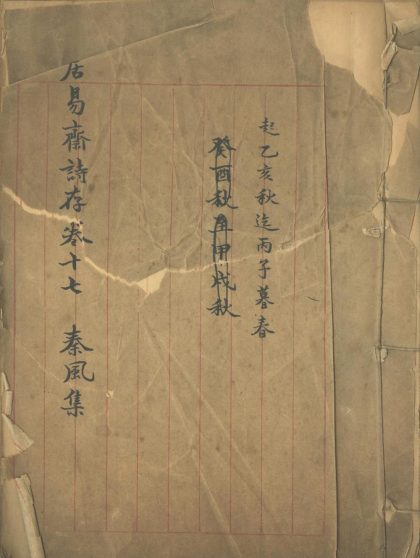 起乙亥秋迄丙子暮春
癸酉秋至甲戌秋
居易齋詩存卷十七 秦風集